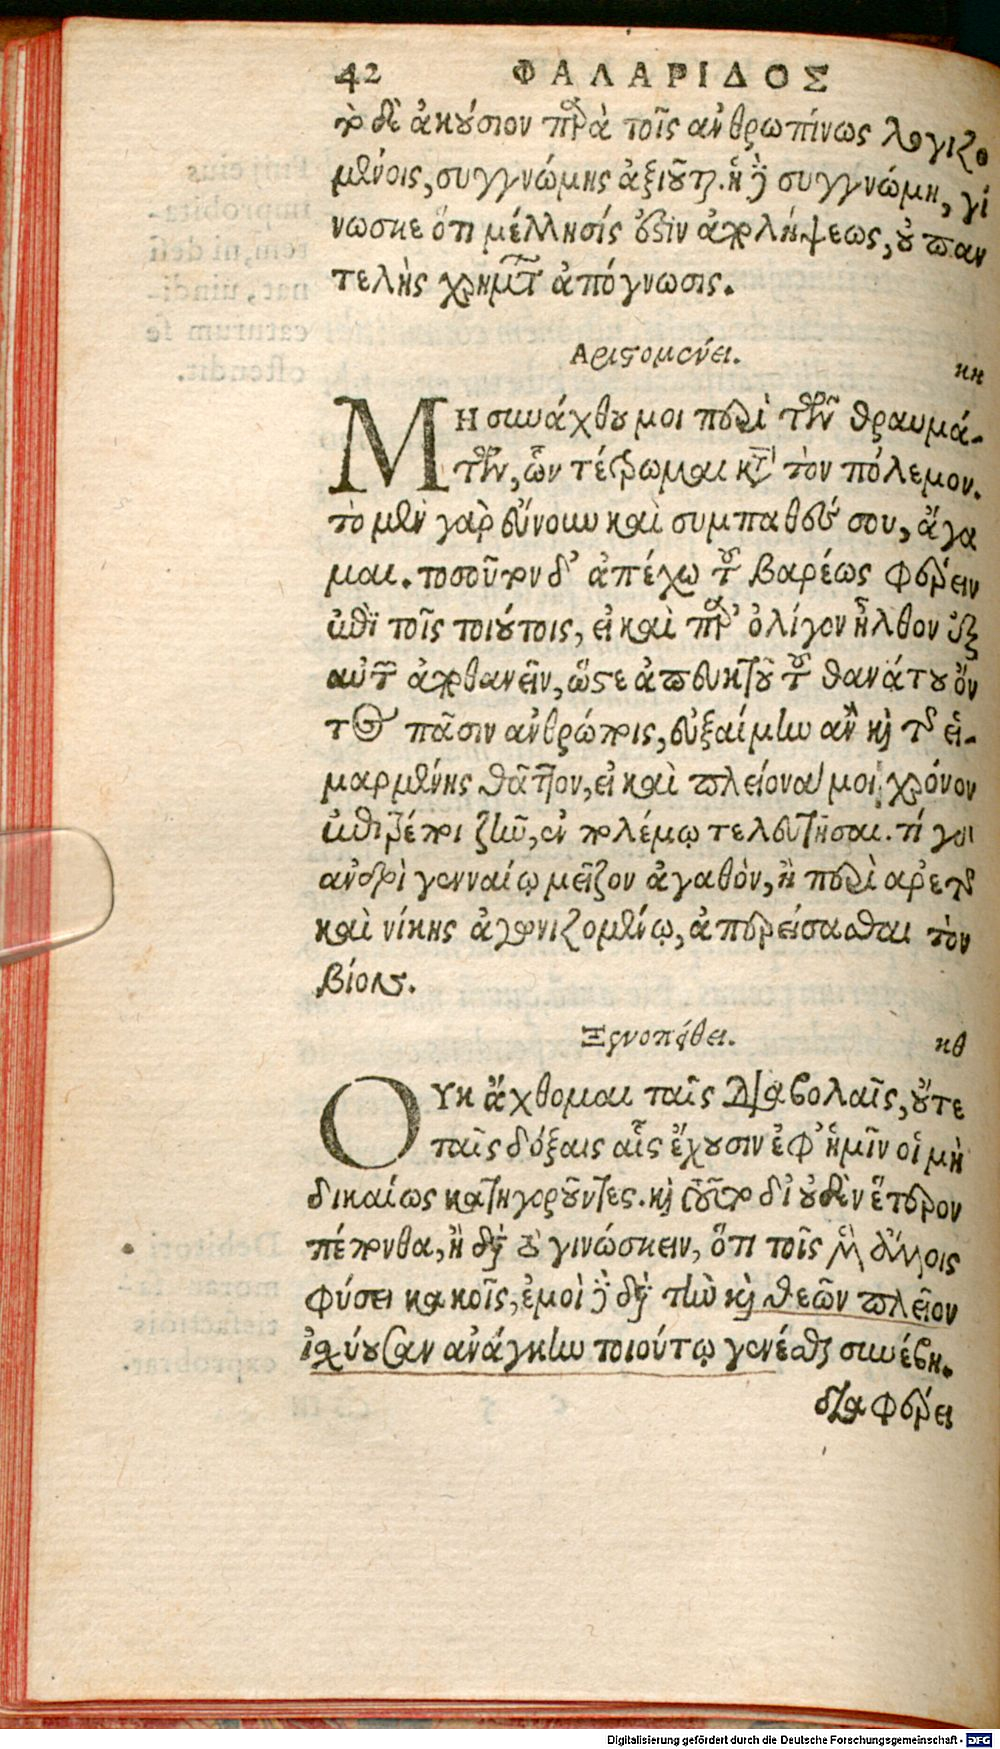 42 ΦΑΛΑΡΙΔΟΣ
τὸ δὲ ἀκούσιον παρὰ τοῖς ἀνθρωπίνως λογιζο
μένοις, συγγνώμης ἀξιοῦται. ἡ γὰρ συγγνώμη, γί
νωσκε ὅτι μέλλησίς ἐστιν ἀπολήψεως, οὐ παν
τελὴς χρημάτων ἀπόγνωσις.
Αριστομένει. κη
ΜΗ συνάχθου μοι περὶ τῶν θραυμά-
των, ὧν τέτρωμαι κατὰ τὸν πόλεμον.
τὸ μὲν γὰρ εὔνουν καὶ συμπαθές σου, ἄγα
μαι. τοσοῦτον δ' ἀπέχω τοῦ βαρέως φέρειν
ἐπὶ τοῖς τοιούτοις, εἰ καὶ παρ' ὀλίγον ἦλθον ἐξ
αὐτῶν ἀποθανεῖν, ὥστε ἀπευκταίου τοῦ θανάτου ὄν
τος πᾶσιν ἀνθρώποις, εὐξαίμην ἂν καὶ τῆς εἱ-
μαρμένης θᾶττον, εἰ καὶ πλείονα μοι χρόνον
ἐπιτρέποι ζῆν, ἐν πολέμῳ τελευτῆσαι. τί γὰρ
ἀνδρὶ γενναίῳ μεῖζον ἀγαθὸν, ἢ περὶ ἀρετῆς
καὶ νίκης ἀγωνιζομένῳ, ἀπερείσασθαι τὸν
βίον.
Ξενοπείθει. κθ
ΟΥκ ἄχθομαι ταῖς διαβολαῖς, οὔτε
ταῖς δόξαις αἷς ἔχουσιν ἐφ' ἡμῖν οἱ μὴ
δικαίως κατηγοροῦντες. καὶ τοῦτο δι' οὐδὲν ἕτερον
πέπονθα, ἢ διὰ τὸ γινώσκειν, ὅτι τοῖς μὲν ἄλλοις
φύσει κακοῖς, ἐμοὶ δὲ διὰ τὴν καὶ θεῶν πλεῖον
ἰσχύουσαν ἀνάγκην τοιούτῳ γενέσθαι συνέβη.
διαφέρει
Digitalisierung gefördert durch die Deutsche Forschungsgemeinschaft - DFG